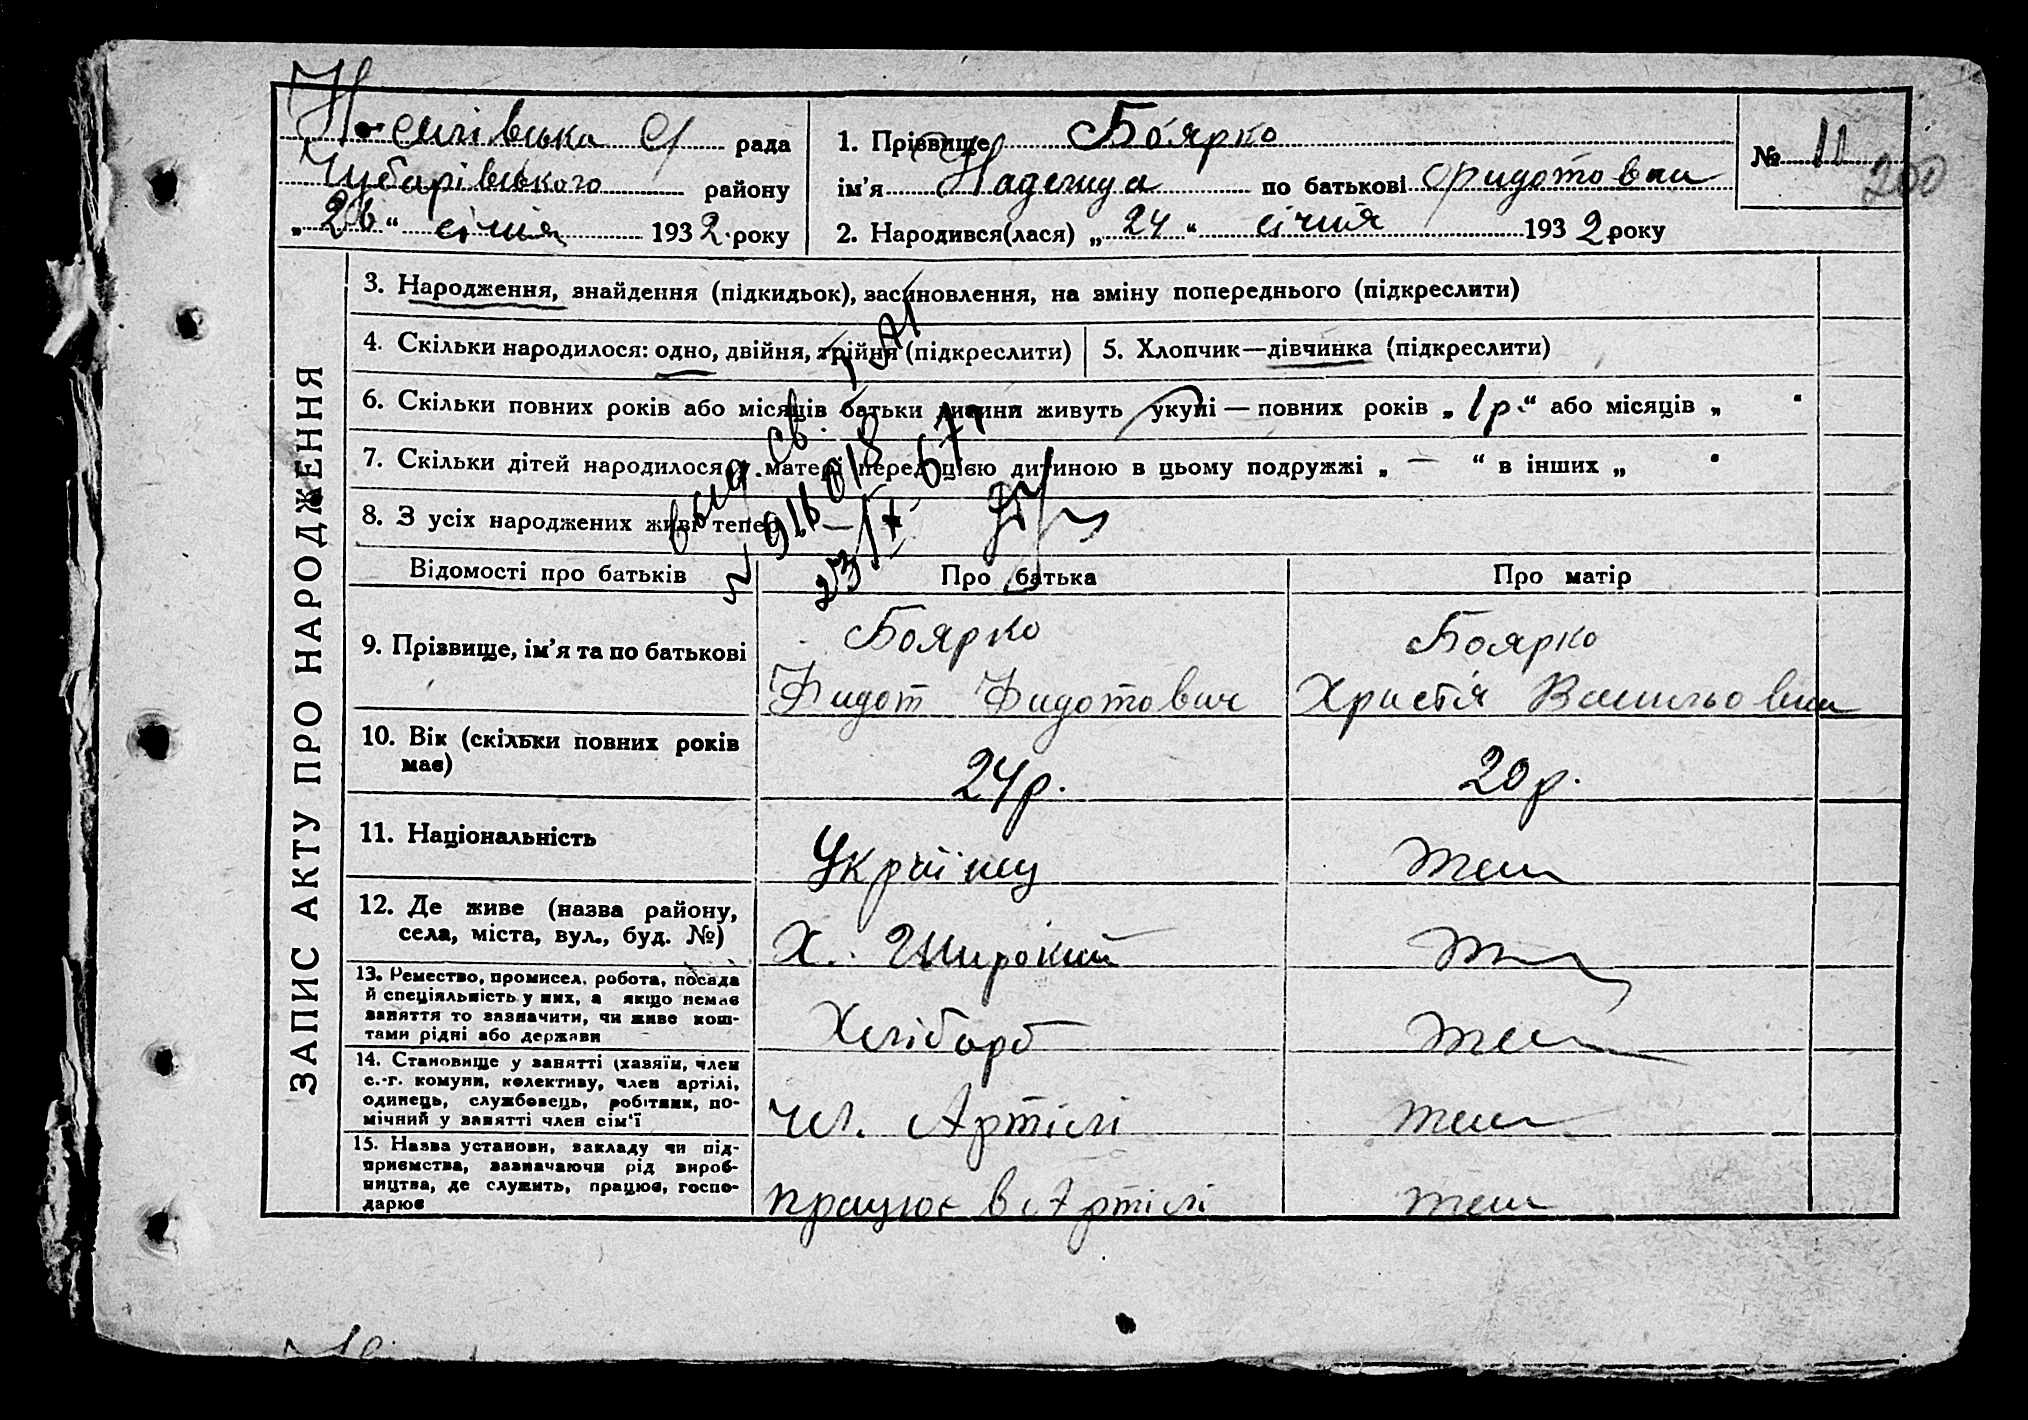 рада
Чубарівського району
„ 26 “ січня 1932 року
1. Прізвище Боярко
ім’я Надежда по батькові Фидотовна
2. Народився(лася) „ 24 “ січня 1932 року
№ 11
200
ЗАПИС АКТУ ПРО НАРОДЖЕННЯ
3. Народження, знайдення (підкидьок), засиновлення, на зміну попереднього (підкреслити)
4. Скільки народилося: одно, двійня, трійня (підкреслити)
5. Хлопчик—дівчинка (підкреслити)
6. Скільки повних років або місяців батьки дитини живуть укупі — повних років „ 1 р. “ або місяців „ “
7. Скільки дітей народилося у матері перед цією дитиною в цьому подружжі „ — “ в інших „ “
8. З усіх народжених живі тепер —
выд. св.
23/X 67 г.
Відомості про батьків
Про батька
Про матір
9. Прізвище, ім’я та по батькові
Боярко
Фидот Фидотович
Боярко
Христя Васильовна
10. Вік (скільки повних років
має)
24 р.
20 р.
11. Національність
Українец
теж
12. Де живе (назва району,
села, міста, вул., буд. №)
Х. Широкий
13. Ремество, промисел, робота, посада
й спеціяльність у них, а якщо немає
заняття то зазначити, чи живе кош-
тами рідні або держави
Хлібороб
теж
14. Становище у занятті (хазяїн, член
с.-г. комуни, колективу, член артілі,
одинець, службовець, робітник, по-
мічний у занятті член сім’ї
чл. Артілі
теж
15. Назва установи, закладу чи під-
приємства, зазначаючи рід вироб-
ництва, де служить, працює, госпо-
дарює
працює в Артілі
теж